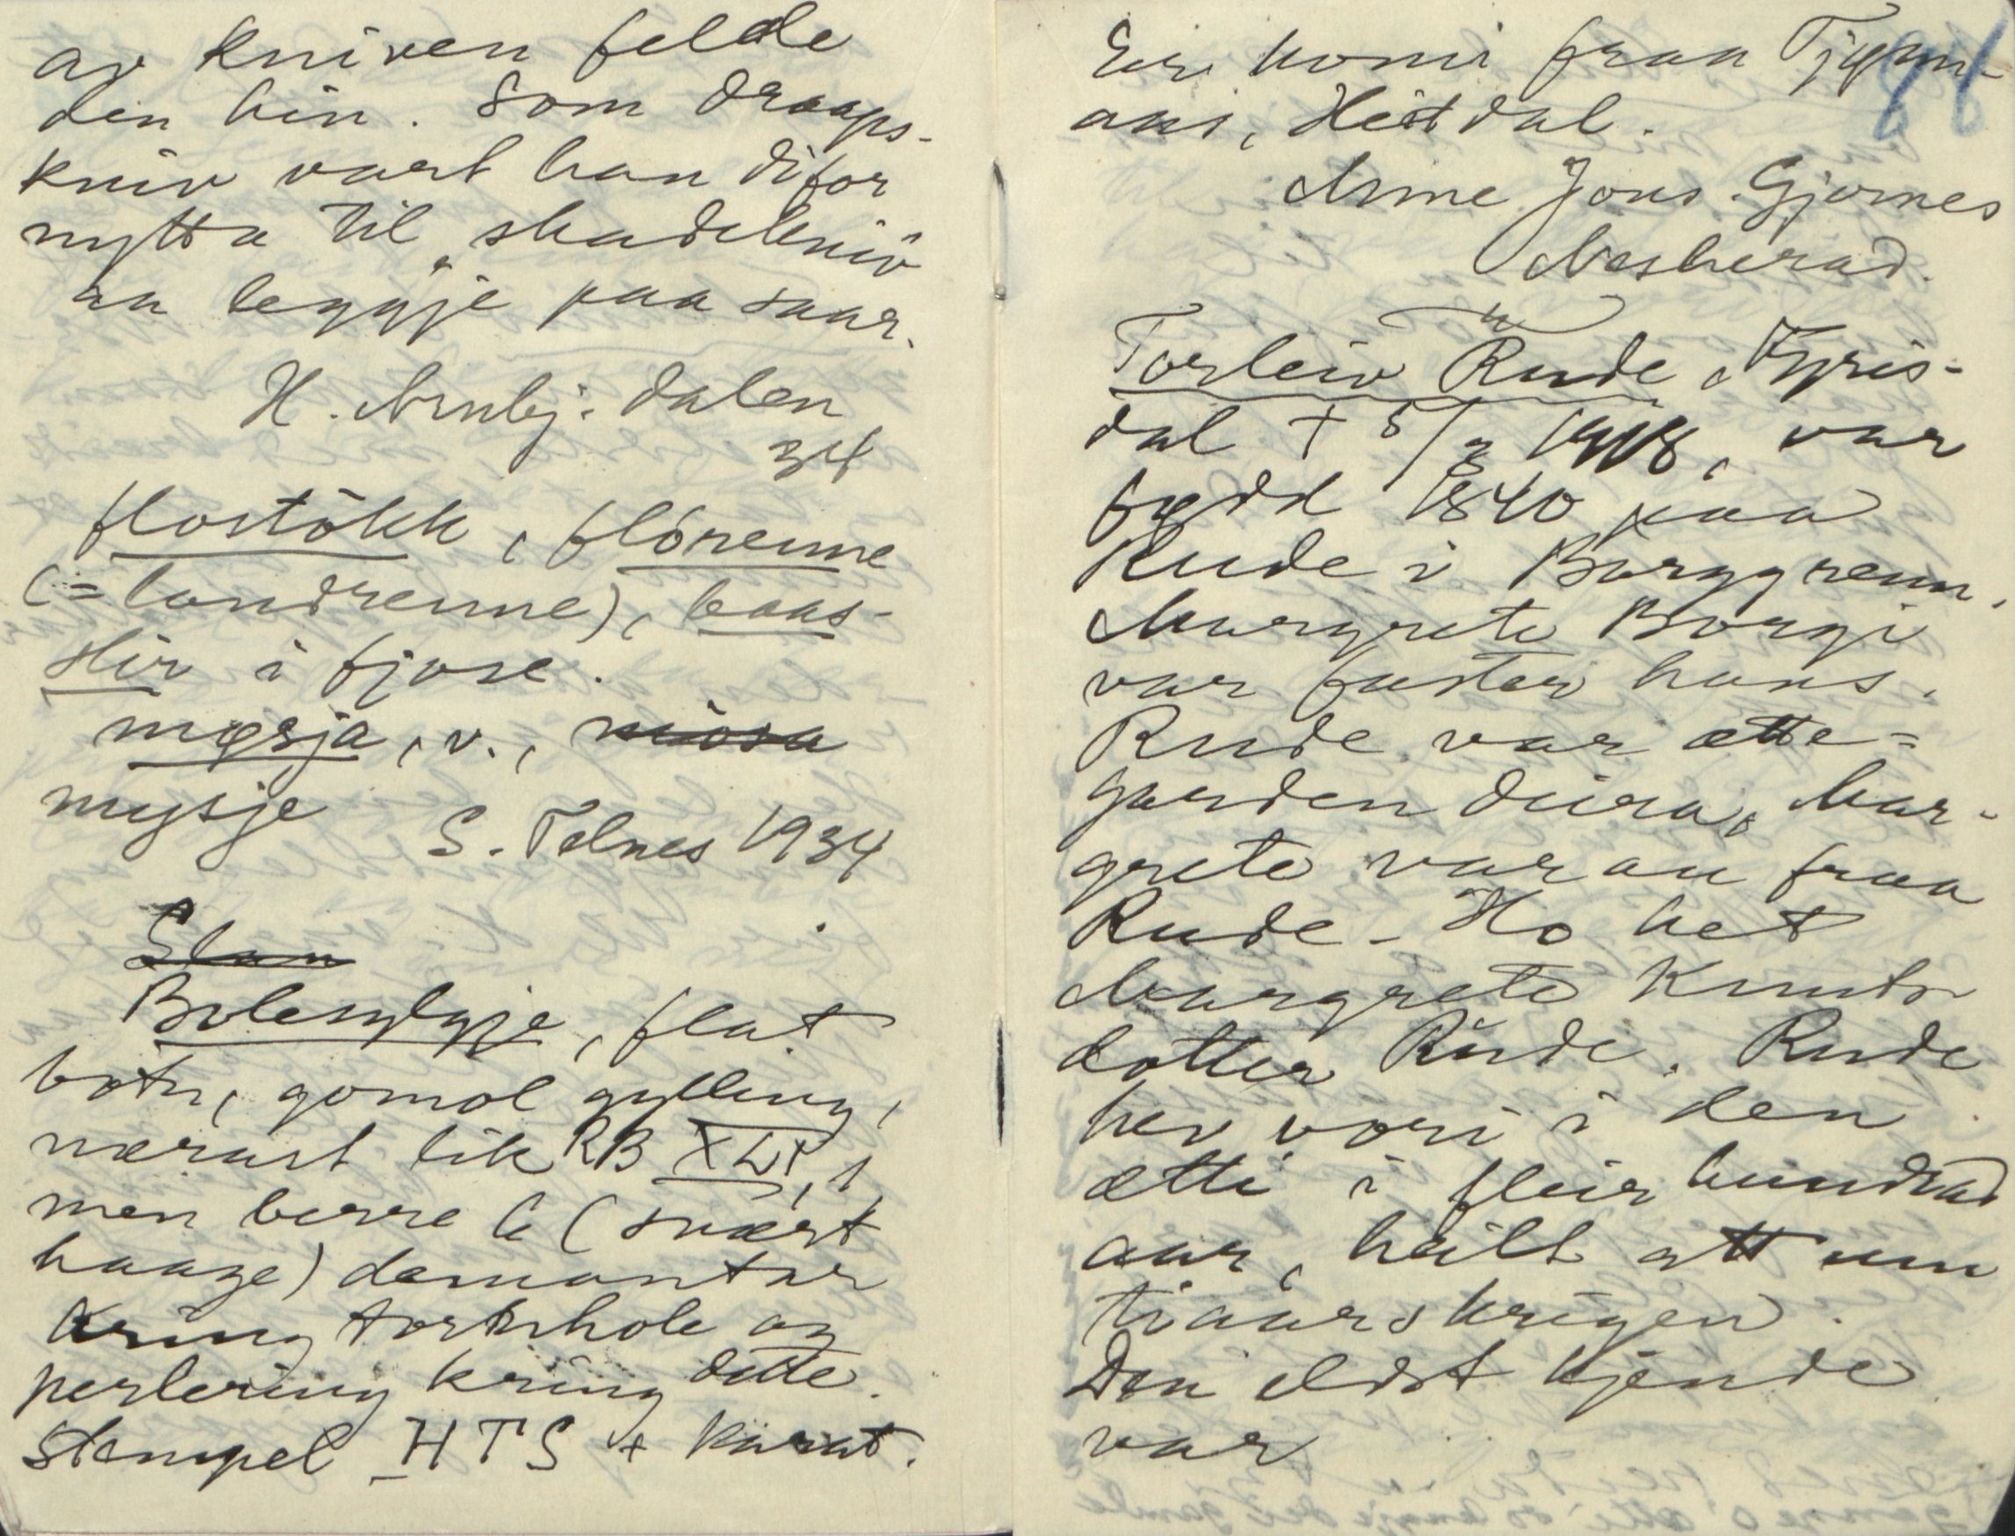 av kniven felde
den hin. Som draaps-
kniv vart han difor
nytta til „skadekniv
aa leggje paa saar.
H. Arnbj. Dalen
34
flostökk, flórenne
(= landrenne), baas-
stir i fjose.
mysja, v., miosa
mysje
S. Telnes 1934
Slan
Bolesylgje, flat
botn, gomol gylling,
nærast lik RB XLI, 1,
men berre 6 (svært
haage) demantar
kring tornhole og
perlering kring dette.
Stempel HTS + karat.
86
Eir. komi fraa Tjønn-
aas, Hitdal.
Anne Jons. Gjernes
Nesherad.
Torleiv Rude, Fyris-
dal + 5/3 1918, var
fødd 1840 paa
Rude i Borggrenn.
Margrete Borgji
var faster hans.
Rude var ætte-
garden deira, Mar-
grete var au fraa
Rude. Ho het
Margrete Knuts-
dotter Rude. Rude
hev vori i den
ætti i fleir hundrad
aar, heilt att um
tiaarskrigen.
Den eldst kjende
var